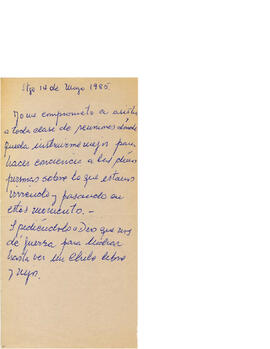 Stgo 14 de Mayo 1985.
Yo me comprometo a asistir
a toda clase de reuniones donde
pueda instruirme mejor para
hacer conciencia a las demás
personas sobre lo que estamos
viviendo y pasando en
estos momento. —
Y pidiéndole a Dios que nos
dé fuerza para luchar
hasta ver un Chile libre
y mejor.